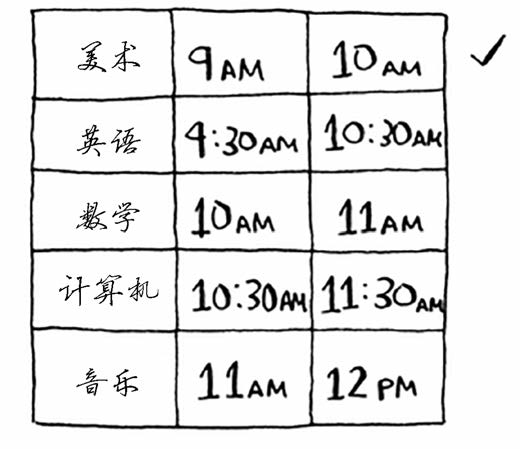 美术 9AM 10AM
英语 9:30AM 10:30AM
数学 10AM 11AM
计算机 10:30AM 11:30AM
音乐 11AM 12PM